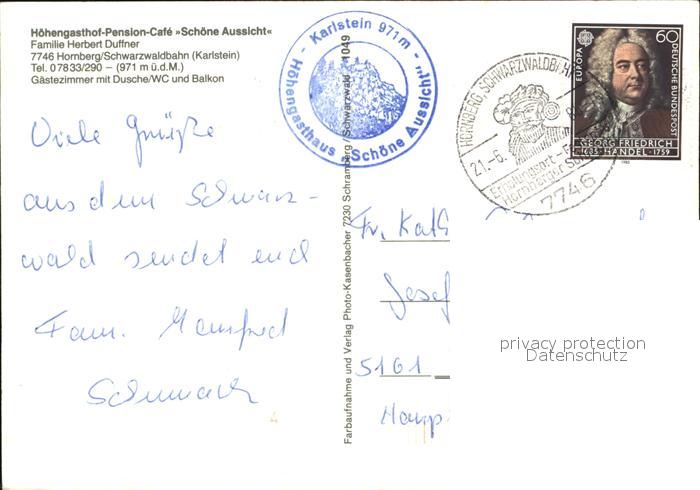 Höhengasthof-Pension-Café »Schöne Aussicht«
Familie Herbert Duffner
7746 Hornberg/Schwarzwaldbahn (Karlstein)
Tel. 07833/290 – (971 m ü.d.M.)
Gästezimmer mit Dusche/WC und Balkon
Karlstein 971m
Höhengasthaus „Schöne Aussicht"
Farbaufnahme und Verlag Photo-Kasenbacher 7230 Schramberg / Schwarzwald 1049
HORNBERG, SCHWARZWALDBAHN
21.-6.
Hornberger
7746
EUROPA
60
DEUTSCHE BUNDESPOST
GEORG FRIEDRICH
1685 · HANDEL · 1759
Viele Grüße
aus dem Schwarz-
wald sendet euch
Fam. Manfred
Fr. Kath
Josef
5161
Haup
privacy protection
Datenschutz